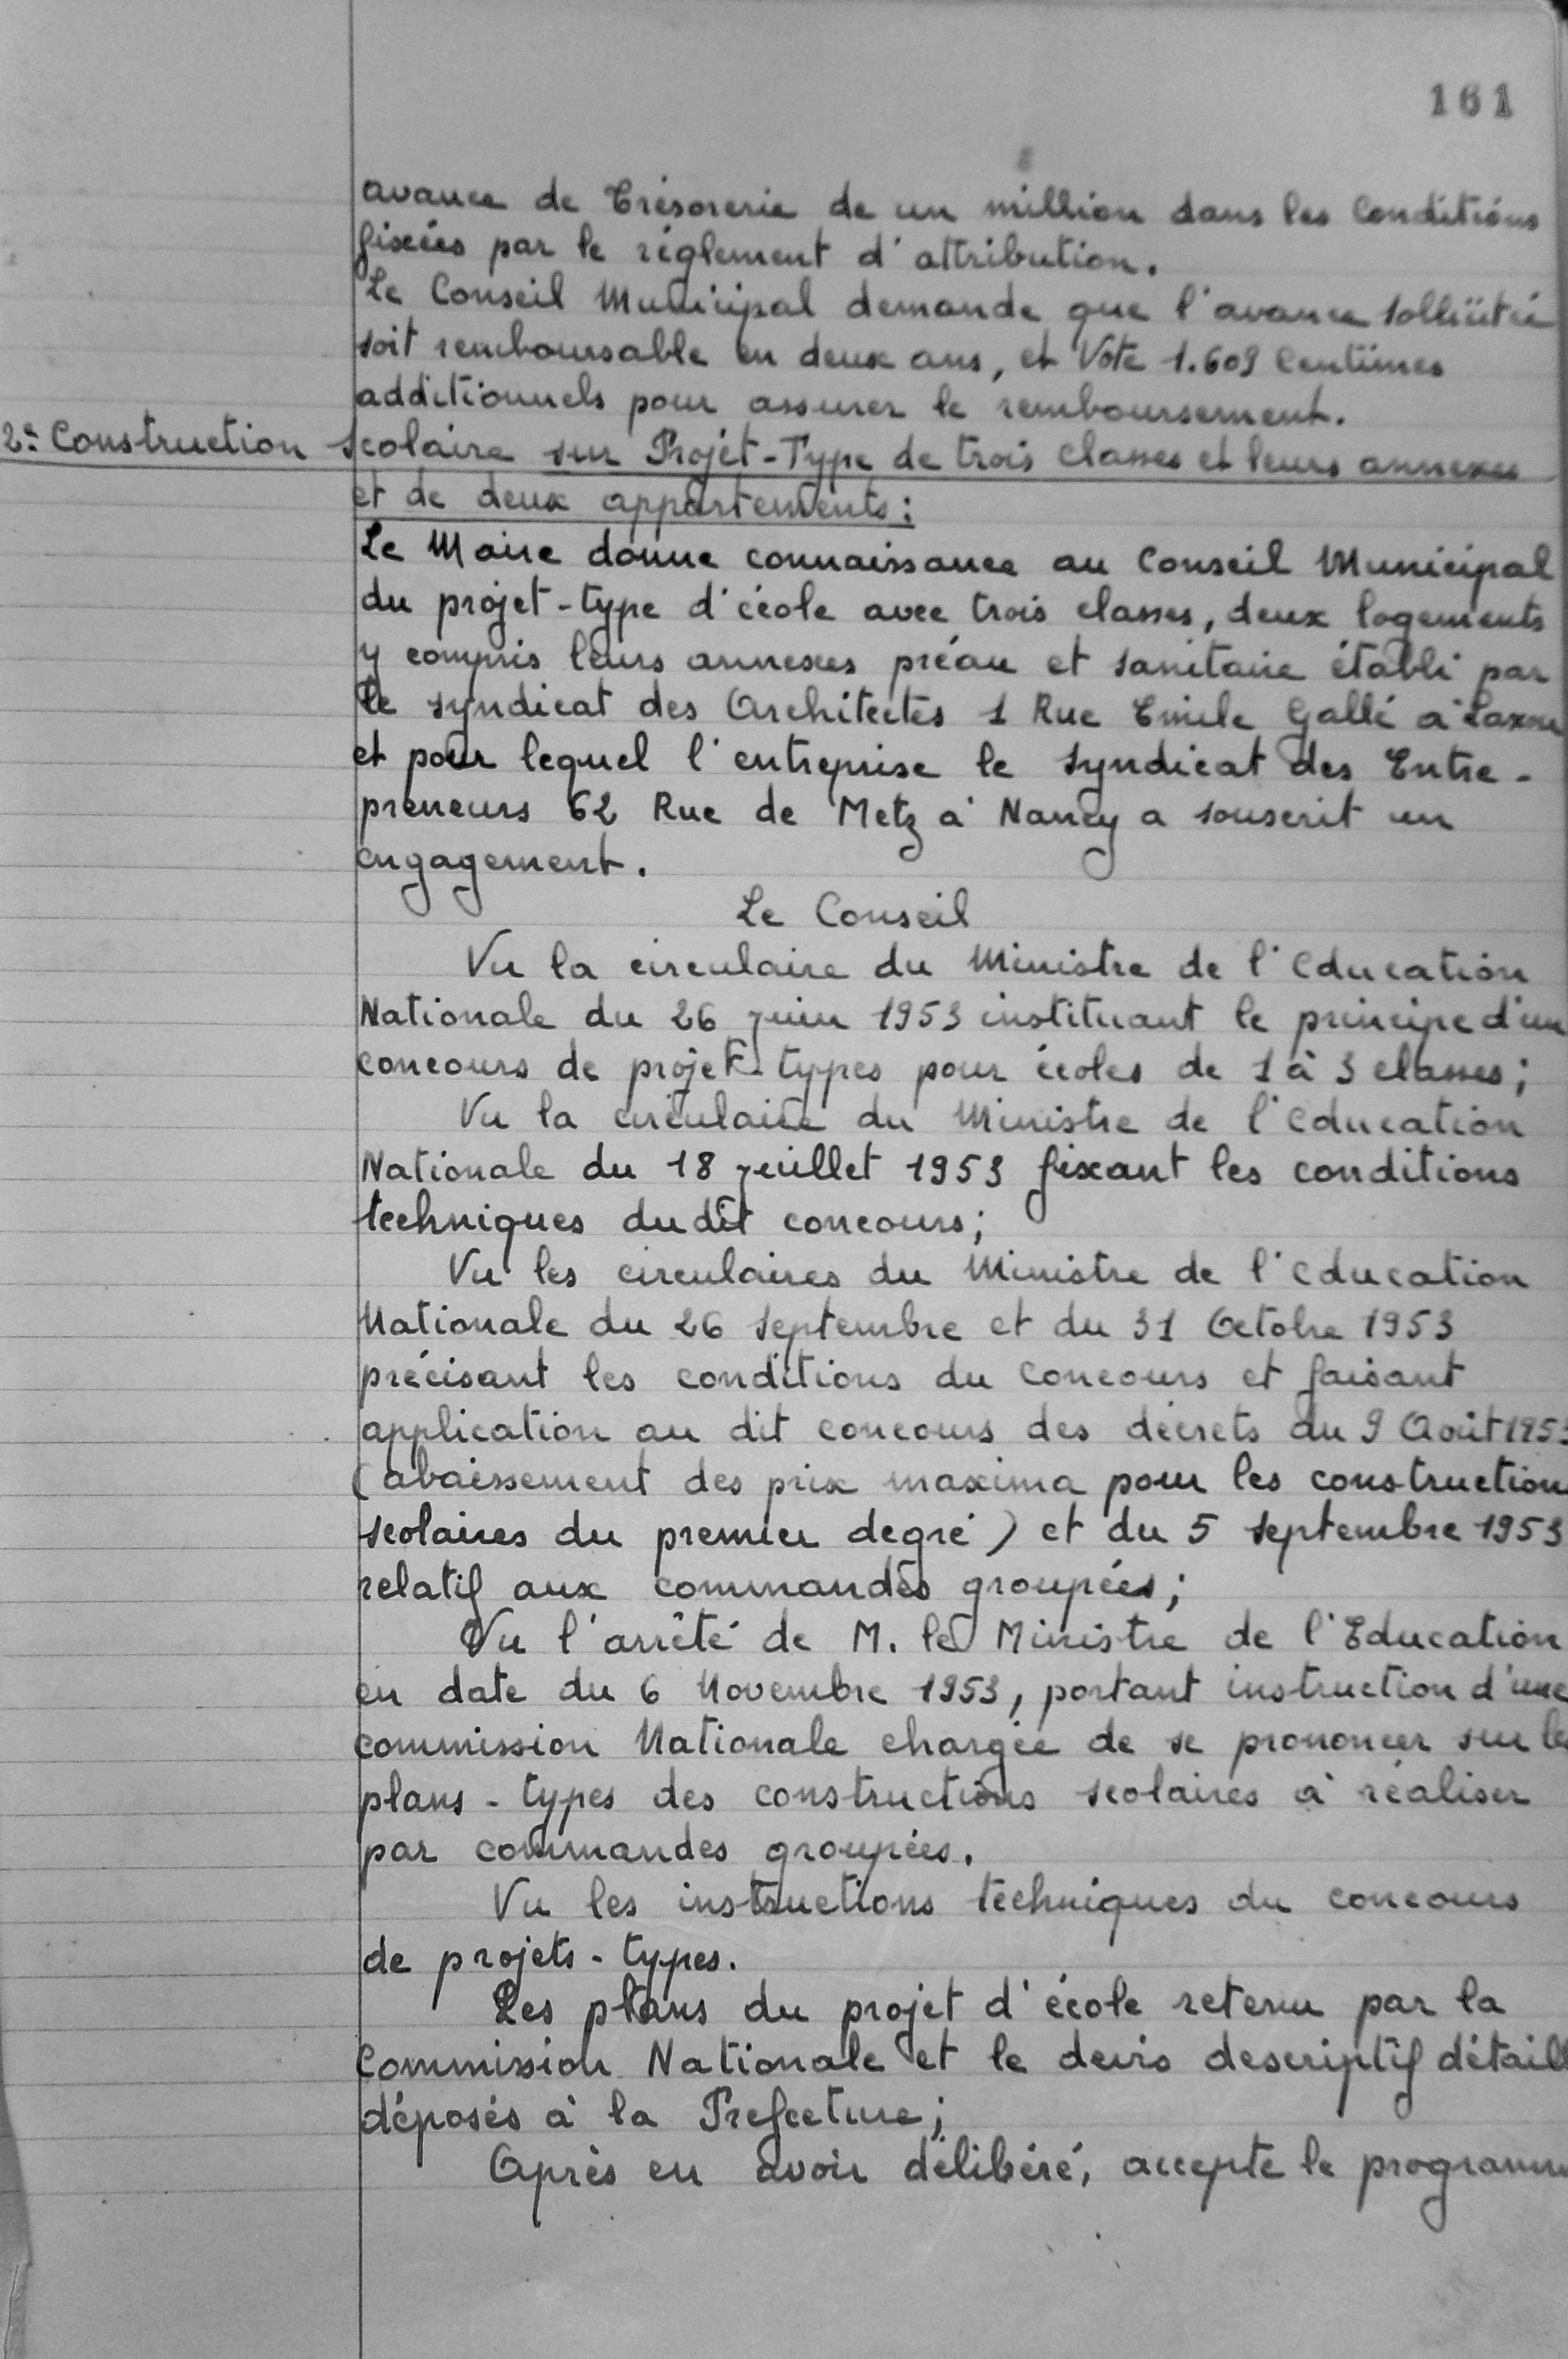 161
avance de trésorerie de un million dans les Conditions
fixées par le réglement d'attribution.
Le Conseil Municipal demande que l'avance sollicitée
soit remboursable en deux ans, et Vote 1.609 Centimes
additionnels pour assurer le remboursement.
2e Construction scolaire sur Projet-Type de trois Classes et leurs annexes
et de deux appartements:
Le Maire donne connaissance au Conseil Municipal
du projet-type d'école avec trois classes, deux logements
y compris leurs annexes préau et sanitaire établi par
le syndicat des Architectes 1 Rue Emile Gallé à Laxou
et pour lequel l'entreprise le Syndicat des Entre-
preneurs 62 Rue de Metz à Nancy a souscrit un
engagement.
Le Conseil
Vu la circulaire du Ministre de l'Education
Nationale du 26 juin 1953 instituant le principe d'un
concours de projet-types pour écoles de 1 à 3 classes;
Vu la circulaire du Ministre de l'Education
Nationale du 18 juillet 1953 fixant les conditions
techniques dudit concours;
Vu les circulaires du Ministre de l'Education
Nationale du 26 Septembre et du 31 Octobre 1953
précisant les conditions du Concours et faisant
application au dit concours des décrets du 9 Août 1953
(abaissement des prix maxima pour les construction
scolaires du premier degré) et du 5 Septembre 1953
relatif aux commandes groupées;
Vu l'arrêté de M. le Ministre de l'Education
en date du 6 Novembre 1953, portant instruction d'une
commission Nationale chargée de se prononcer sur les
plans-types des constructions scolaires à réaliser
par commandes groupées.
Vu les instructions techniques du concours
de projets-types.
Les plans du projet d'école retenu par la
Commission Nationale et le devis descriptif détaill
déposés à la Prefecture;
Après en avoir délibéré, accepte le programme